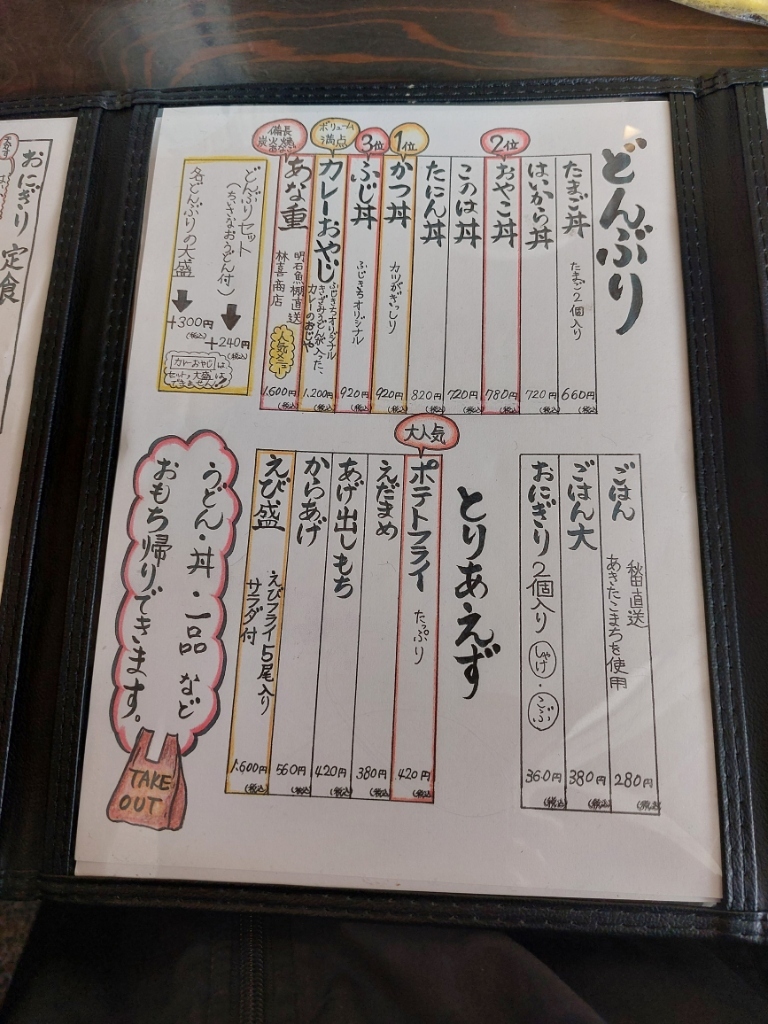 どんぶり
たまご丼 たまご2個入り 660円(税込)
はいから丼 720円(税込)
2位
おやこ丼 780円(税込)
このは丼 720円(税込)
たにん丼 820円(税込)
1位
かつ丼 カツがぎっしり 920円(税込)
3位
ふじ丼 ふじきちオリジナル 920円(税込)
ボリューム満点
カレーおやじ ふじきちオリジナル
きざみうどんが入った、
カレーのおじや 1,200円(税込)
備長炭火焼
あな重 明石魚棚直送
林喜商店
人気メニュー
1,600円(税込)
どんぶりセット
(ちいさなおうどん付)
+240円(税込)
各どんぶりの大盛
+300円(税込)
カレーおやじは
セット、大盛は
できません!
ごはん 秋田直送
あきたこまちを使用 280円(税込)
ごはん大 380円(税込)
おにぎり 2個入り しゃけ・こぶ 360円(税込)
とりあえず
大人気
ポテトフライ たっぷり 420円(税込)
えだまめ 380円(税込)
あげ出しもち 420円(税込)
からあげ 560円(税込)
えび盛 えびフライ5尾入り
サラダ付 1,600円(税込)
うどん・丼・一品 など
おもち帰りできます。
TAKE
OUT
おにぎり定食